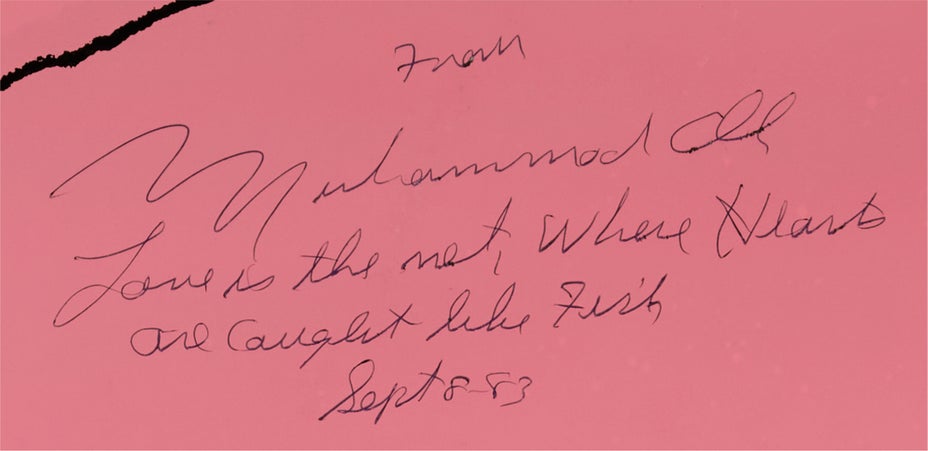 From
Muhammad Ali
Love is the net, Where Hearts
are Caught like Fish
Sept 8-83